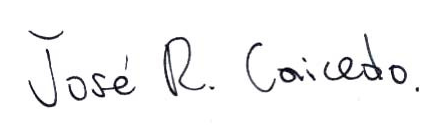 José R. Caicedo.